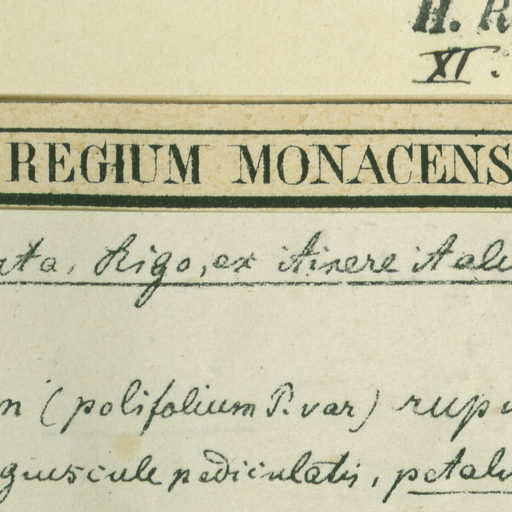 H. R
XI.
REGIUM MONACENS
ta, Rigo, ex itinere itali
n (polifolium P. var) rup
guscule pediculatis, petali